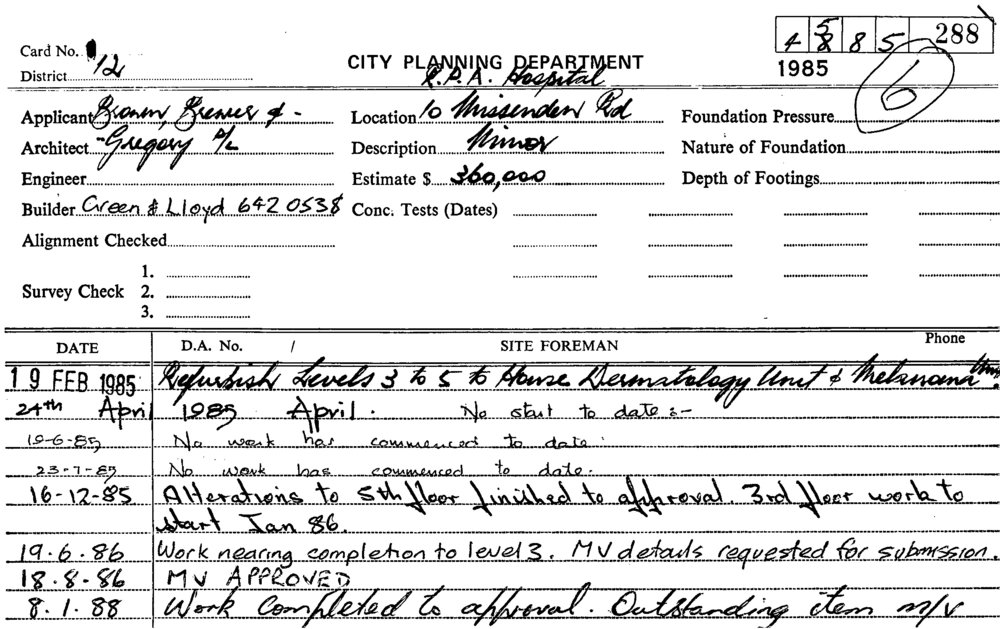 4 5 8 8 5 288
Card No.
District 12
CITY PLANNING DEPARTMENT
1985
R.P.A. Hospital
6
Applicant Brown, Brewer & -
Location 10 Missenden Rd
Foundation Pressure
Architect - Gregory P/L
Description Minor
Nature of Foundation
Engineer
Estimate $ 360,000
Depth of Footings
Builder Green & Lloyd 642 0538
Conc. Tests (Dates)
Alignment Checked
1.
Survey Check 2.
3.
DATE D.A. No. / SITE FOREMAN Phone
19 FEB 1985 Refurbish Levels 3 to 5 to House Dermatology Unit & Melanoma Unit.
24th April 1985 April. No start to date :-
19-6-85 No work has commenced to date.
23-7-85 No work has commenced to date.
16-12-85 Alterations to 5th floor finished to approval. 3rd floor work to
start Jan 86.
19.6.86 Work nearing completion to level 3. MV details requested for submission.
18.8.86 MV APPROVED
8.1.88 Work Completed to approval. Outstanding item m/v